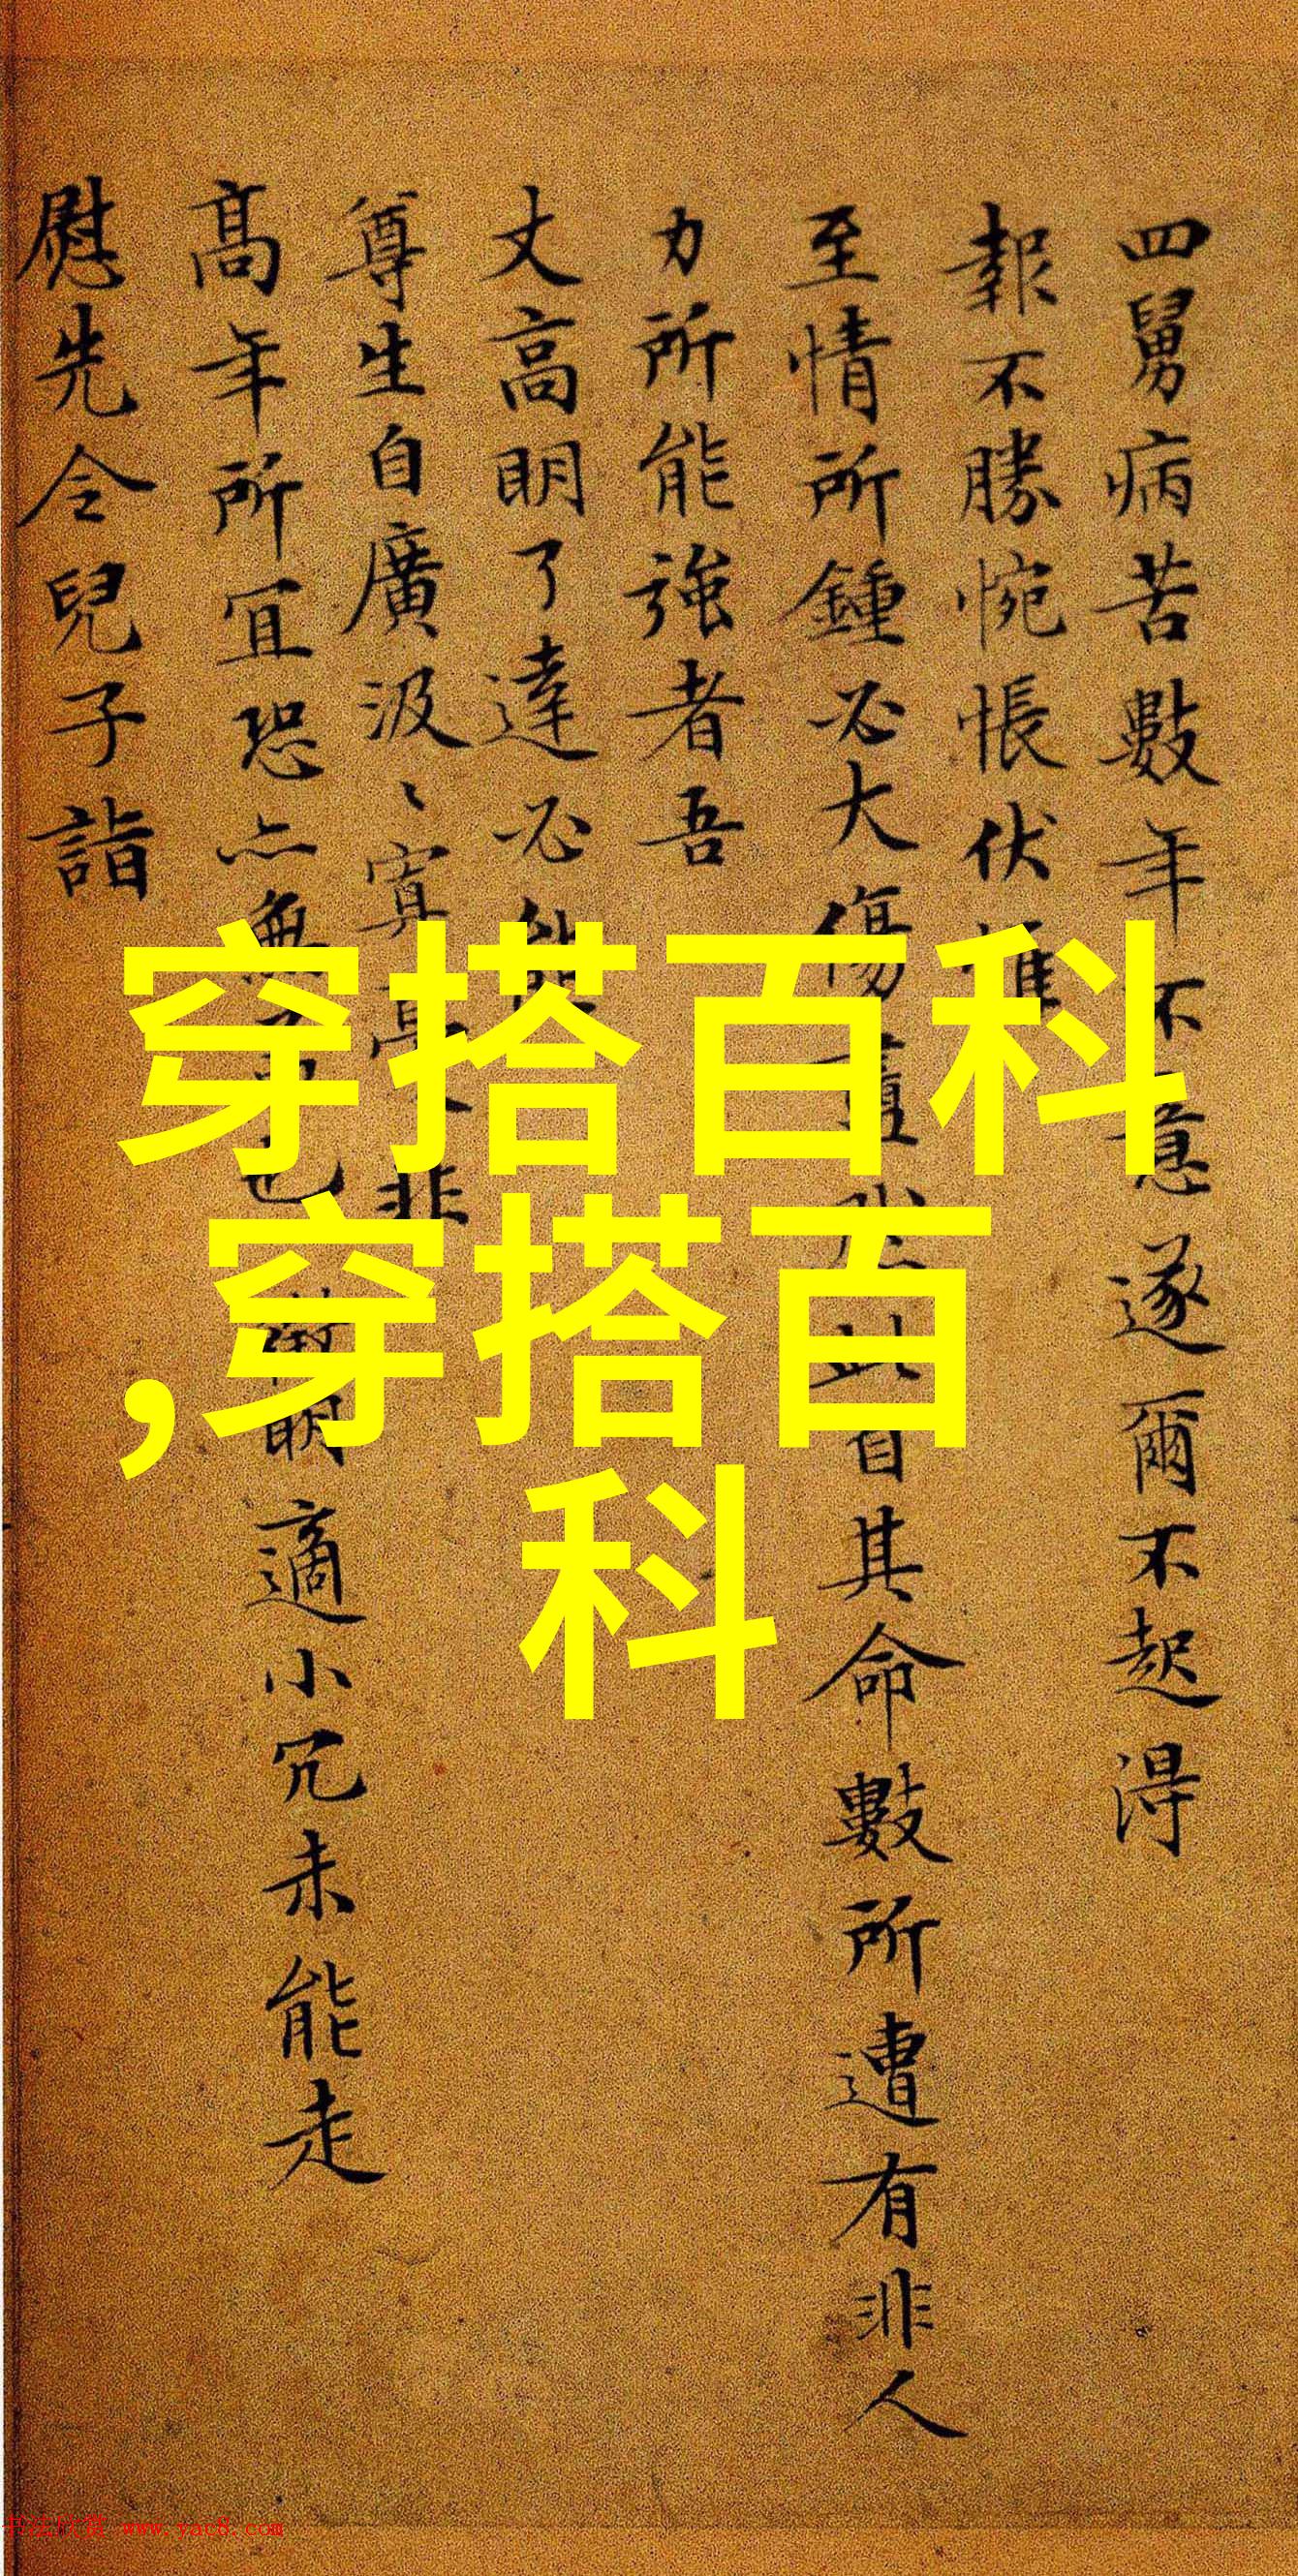 四舅病苦數年不意遂爾不起得
報不勝惋悵伏惟
至情所鍾必大傷重此自其命數所遭有非人
力所能強者吾
丈高明了達必能
尊生自廣汲〻寘
高年所宜恐亦無明適小冗未能走
慰先令兒子詣
穿搭百科
,穿搭百
科
书法欣赏 www.yac8.com